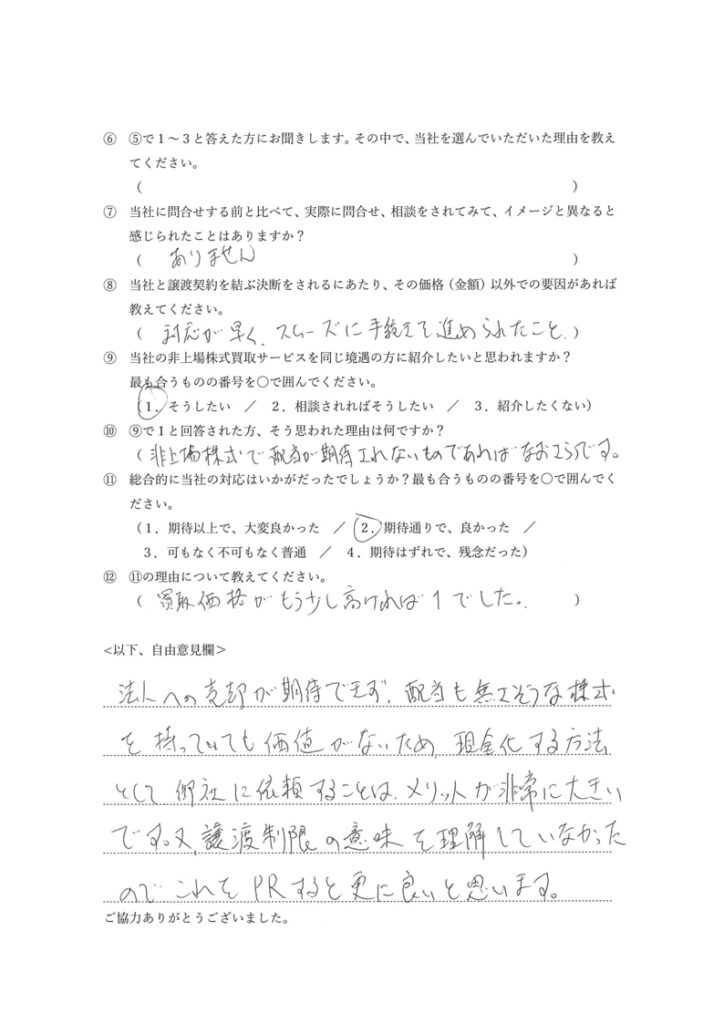 ⑥ ⑤で１～３と答えた方にお聞きします。その中で、当社を選んでいただいた理由を教え
てください。
（ ）
⑦ 当社に問合せする前と比べて、実際に問合せ、相談をされてみて、イメージと異なると
感じられたことはありますか？
（ ありません ）
⑧ 当社と譲渡契約を結ぶ決断をされるにあたり、その価格（金額）以外での要因があれば
教えてください。
（ 対応が早く、スムーズに手続きを進められたこと。）
⑨ 当社の非上場株式買取サービスを同じ境遇の方に紹介したいと思われますか？
最も合うものの番号を○で囲んでください。
（１．そうしたい ／ ２．相談されればそうしたい ／ ３．紹介したくない）
⑩ ⑨で１と回答された方、そう思われた理由は何ですか？
（非上場株式で配当が期待されないものであればなおさらです。
⑪ 総合的に当社の対応はいかがだったでしょうか？最も合うものの番号を○で囲んでくだ
さい。
（１．期待以上で、大変良かった ／ ２．期待通りで、良かった ／
３．可もなく不可もなく普通 ／ ４．期待はずれで、残念だった）
⑫ ⑪の理由について教えてください。
（ 買取価格がもう少し高ければ１でした。 ）
<以下、自由意見欄>
法人への売却が期待できず、配当も無さそうな株式
を持っていても価値がないため、現金化する方法
として御社に依頼することは、メリットが非常に大きい
です。又、譲渡制限の意味を理解していなかった
のでこれをPRすると更に良いと思います。
ご協力ありがとうございました。